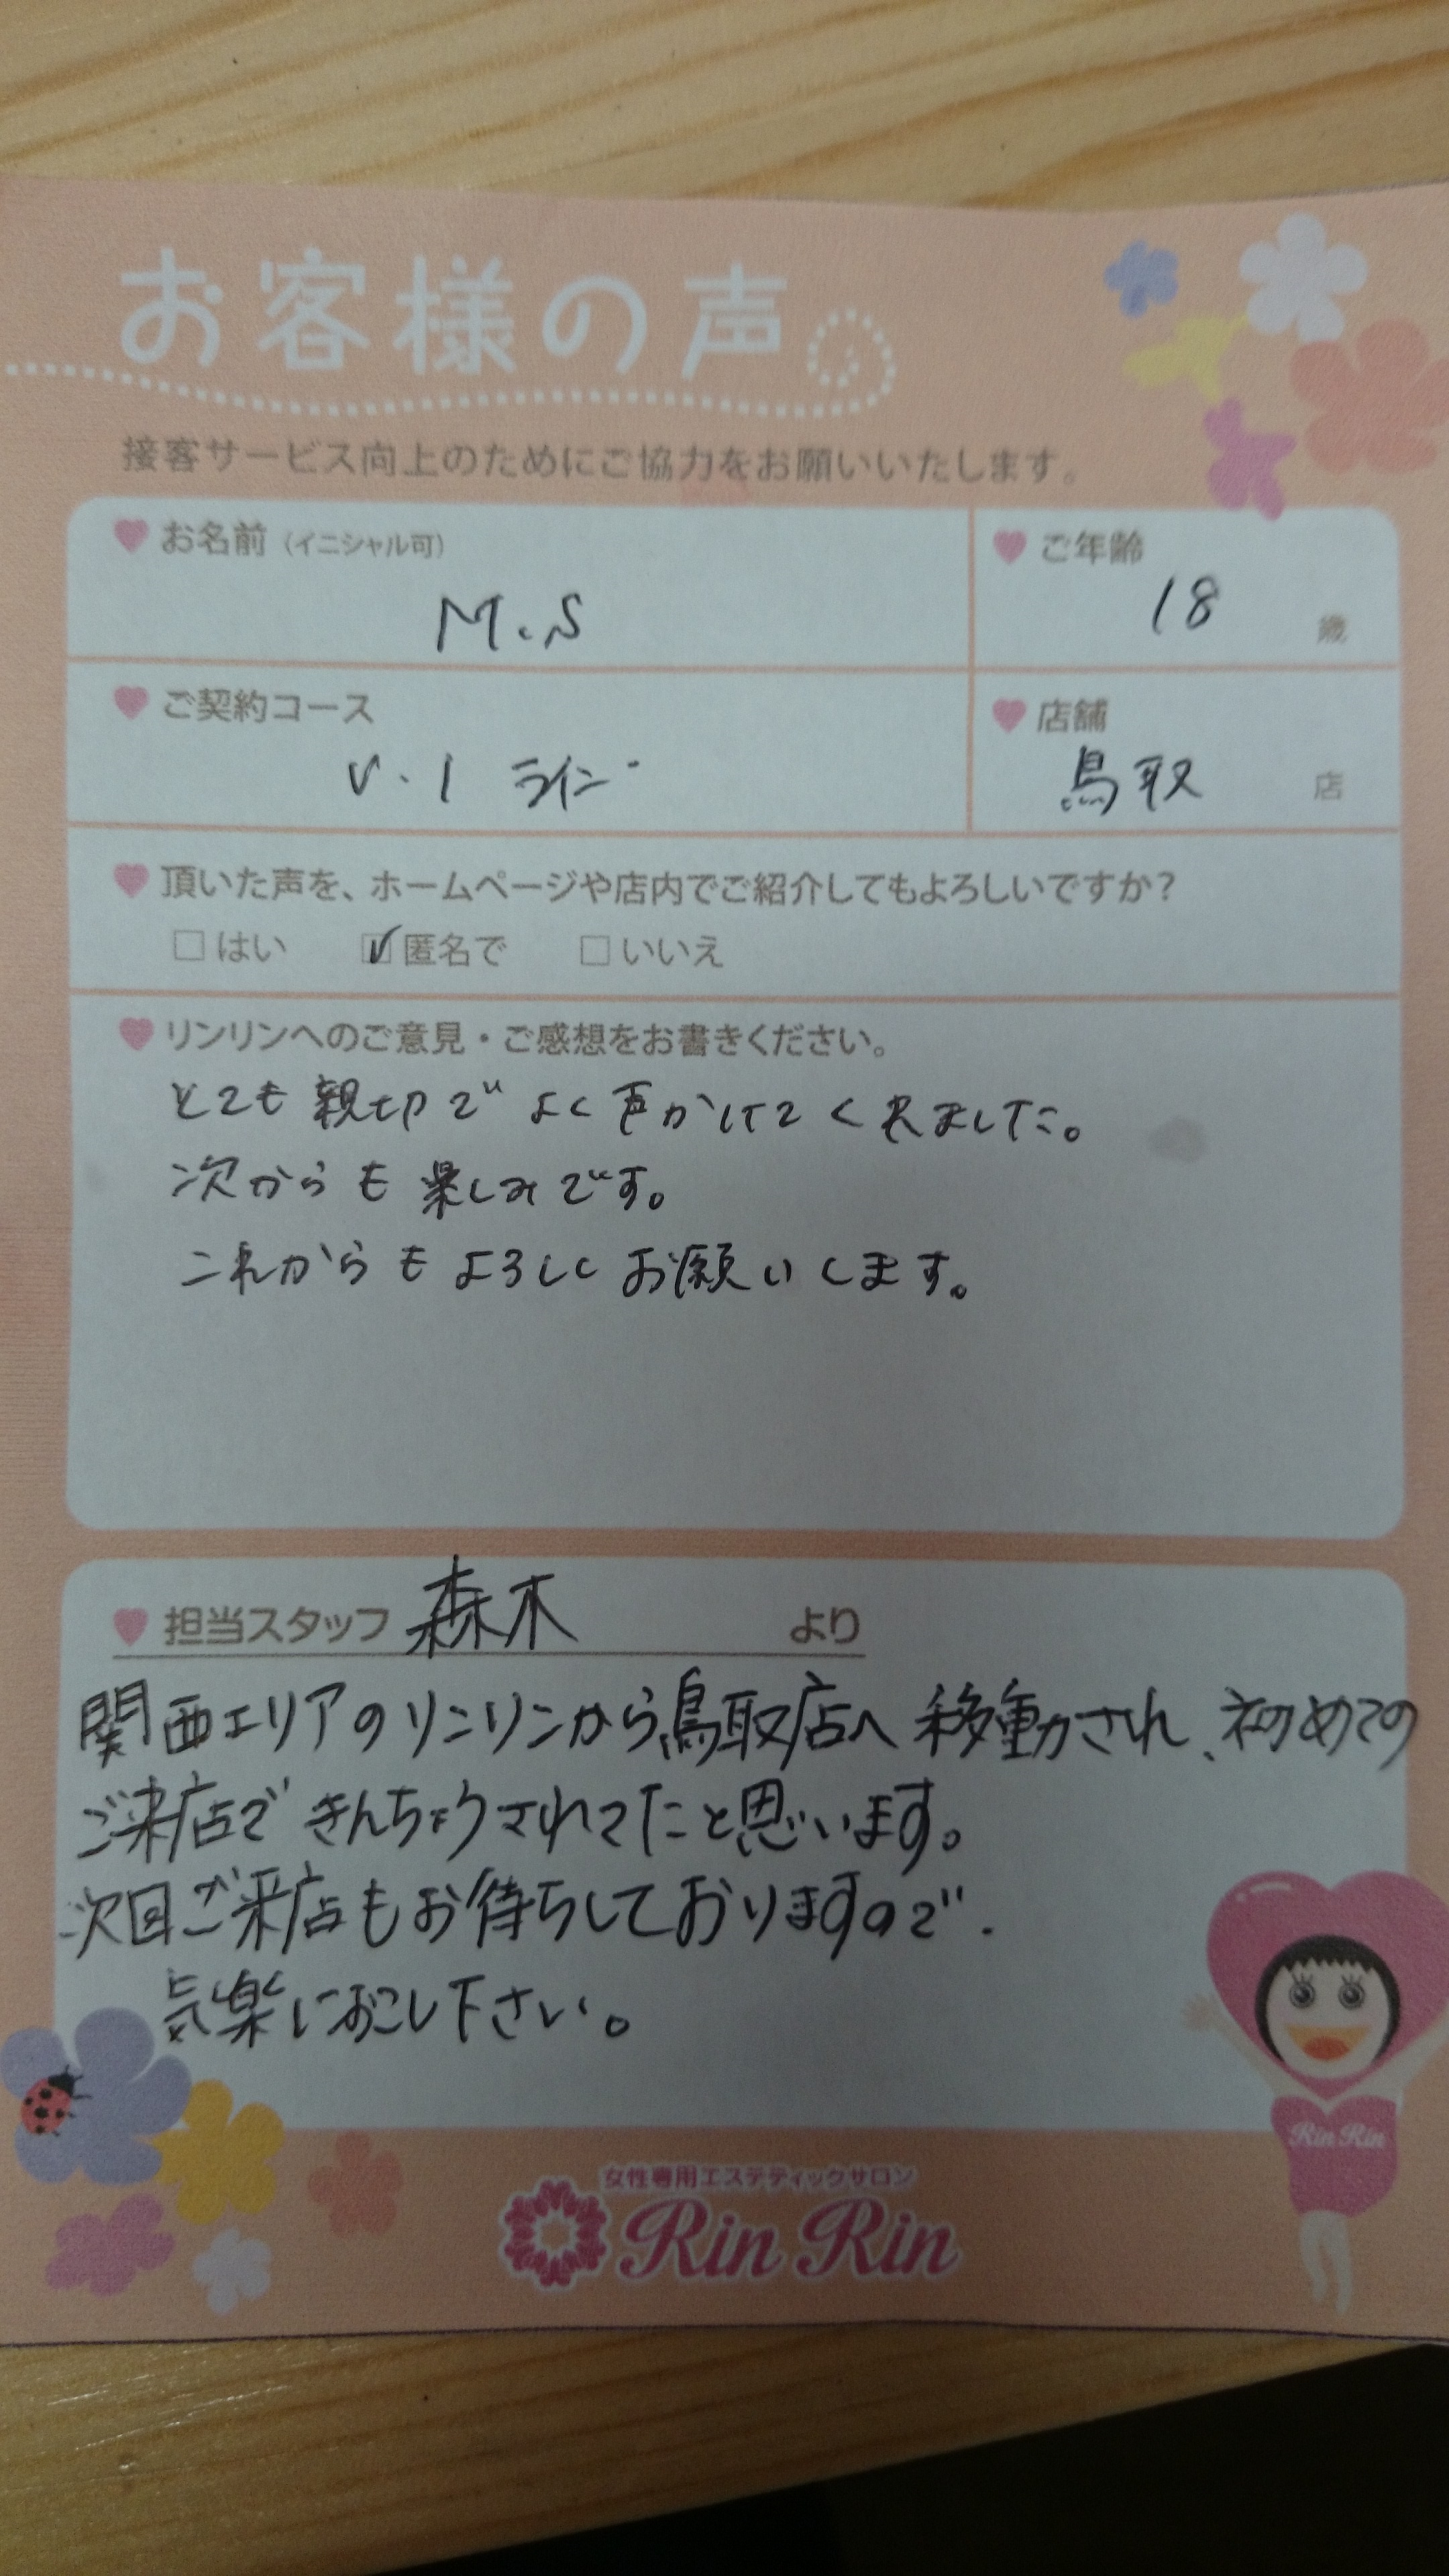 お客様の声
接客サービス向上のためにご協力をお願いいたします。
お名前（イニシャル可）
M.S
ご年齢
18 歳
ご契約コース
V・I ライン
店舗
鳥取 店
頂いた声を、ホームページや店内でご紹介してもよろしいですか？
はい 匿名で いいえ
リンリンへのご意見・ご感想をお書きください。
とても親切でよく声かけてくれました。
次からも楽しみです。
これからもよろしくお願いします。
担当スタッフ 森木 より
関西エリアのリンリンから鳥取店へ移動され、初めての
ご来店できんちょうされてたと思います。
次回ご来店もお待ちしておりますので、
気楽におこし下さい。
Rin Rin
女性専用エステティックサロン
Rin Rin